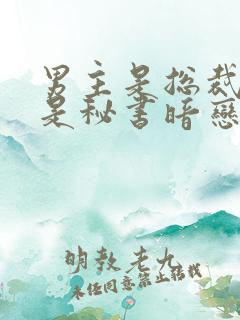 男主是总裁
是秘书暗戀
明敖老九
未经同意禁止转载